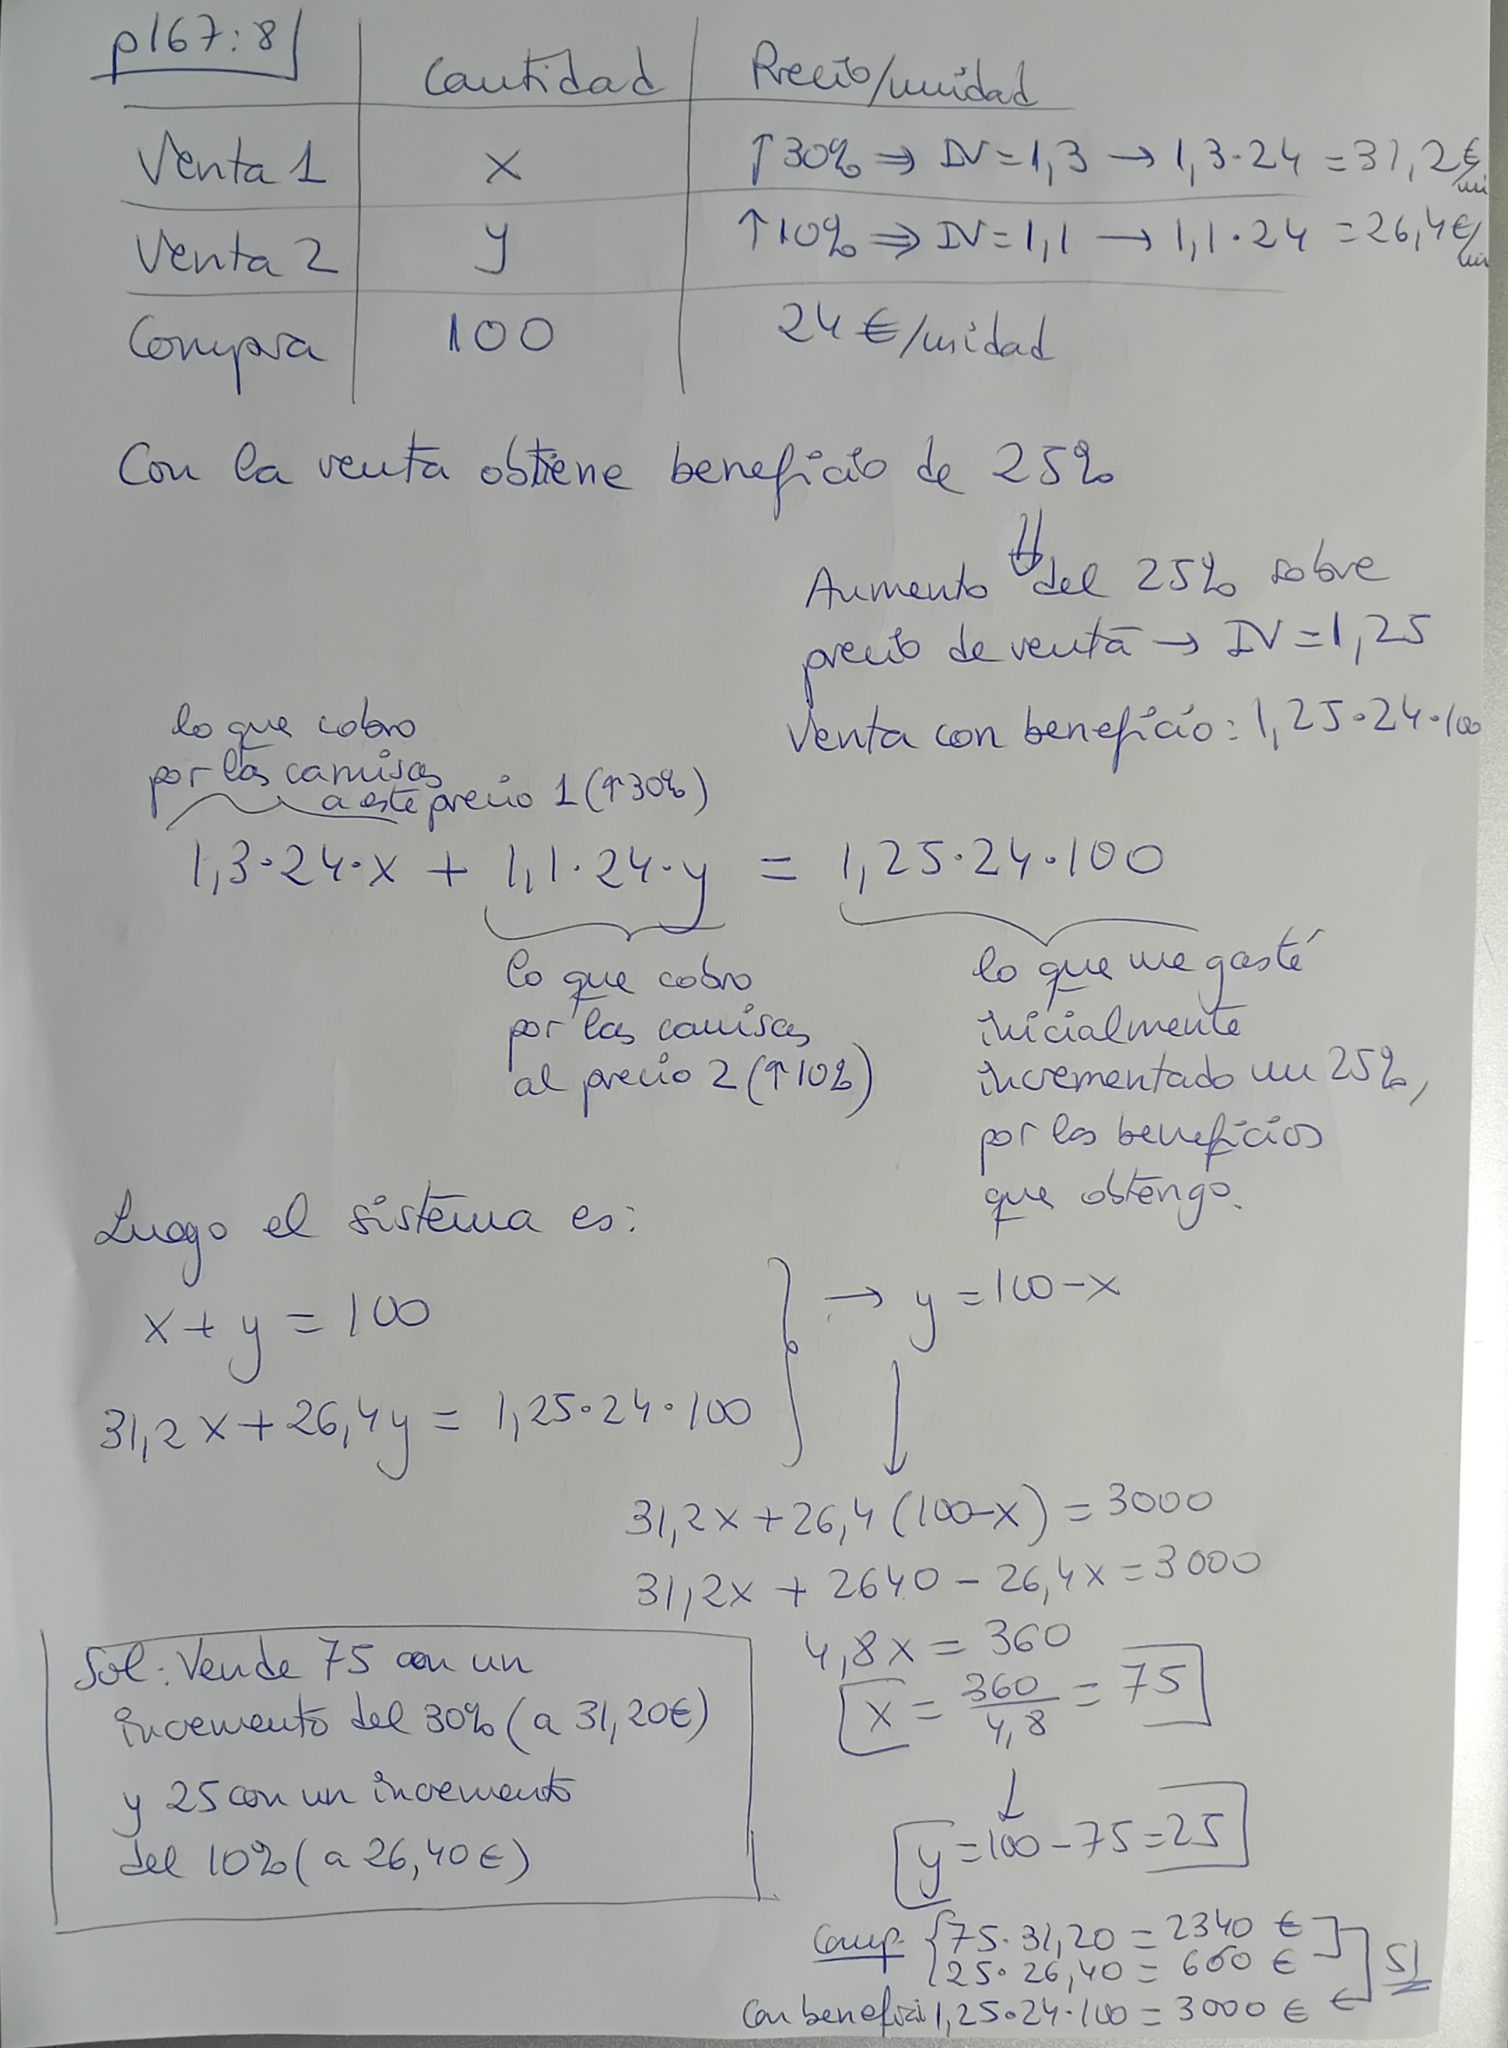 p167:8
Cantidad Precio/unidad
Venta 1 x ↑30% ⇒ IV=1,3 → 1,3·24 = 31,2€/uni
Venta 2 y ↑10% ⇒ IV=1,1 → 1,1·24 = 26,4€/uni
Compra 100 24€/unidad
Con la venta obtiene beneficio de 25%
⇓
Aumento del 25% sobre
precio de venta → IV=1,25
Venta con beneficio: 1,25·24·100
lo que cobro
por las camisas
a este precio 1 (↑30%)
1,3·24·x + 1,1·24·y = 1,25·24·100
lo que cobro
por las camisas
al precio 2 (↑10%)
lo que me gasté
inicialmente
incrementado un 25%,
por los beneficios
que obtengo.
Luego el sistema es:
x+y = 100 → y = 100-x
31,2x+26,4y = 1,25·24·100 ↓
31,2x+26,4(100-x) = 3000
31,2x + 2640 - 26,4x = 3000
4,8x = 360
x = 360/4,8 = 75
↓
y = 100-75 = 25
Sol: Vende 75 con un
incremento del 30% (a 31,20€)
y 25 con un incremento
del 10% (a 26,40€)
Comp. {75·31,20 = 2340 €
25·26,40 = 660 €
SÍ
Con benefici 1,25·24·100 = 3000 € ←